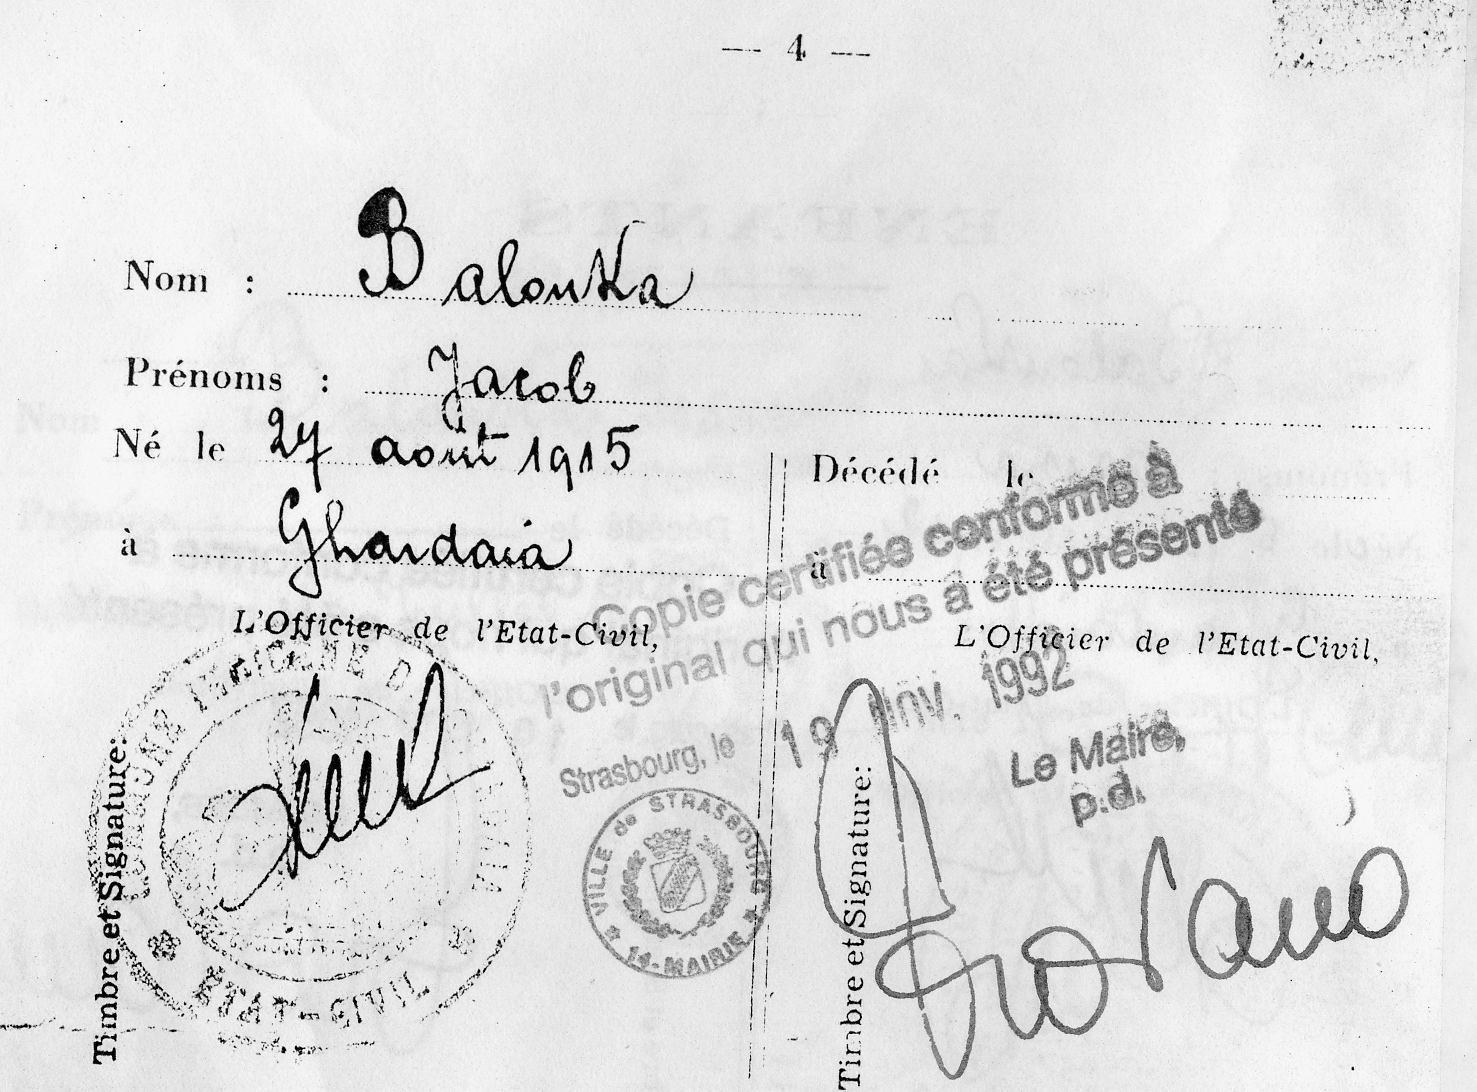 — 4 —
Nom : Balouka
Prénoms : Jacob
Né le 27 août 1915
à Ghardaia
L'Officier de l'Etat-Civil,
Timbre et Signature:
COMMUNE INDIGENE D
ETAT-CIVIL
Décédé le
à
L'Officier de l'Etat-Civil,
Timbre et Signature:
Copie certifiée conforme à
l'original qui nous a été présenté
Strasbourg, le 19 NOV. 1992
Le Maire,
p.d.
VILLE de STRASBOURG
14-MAIRIE